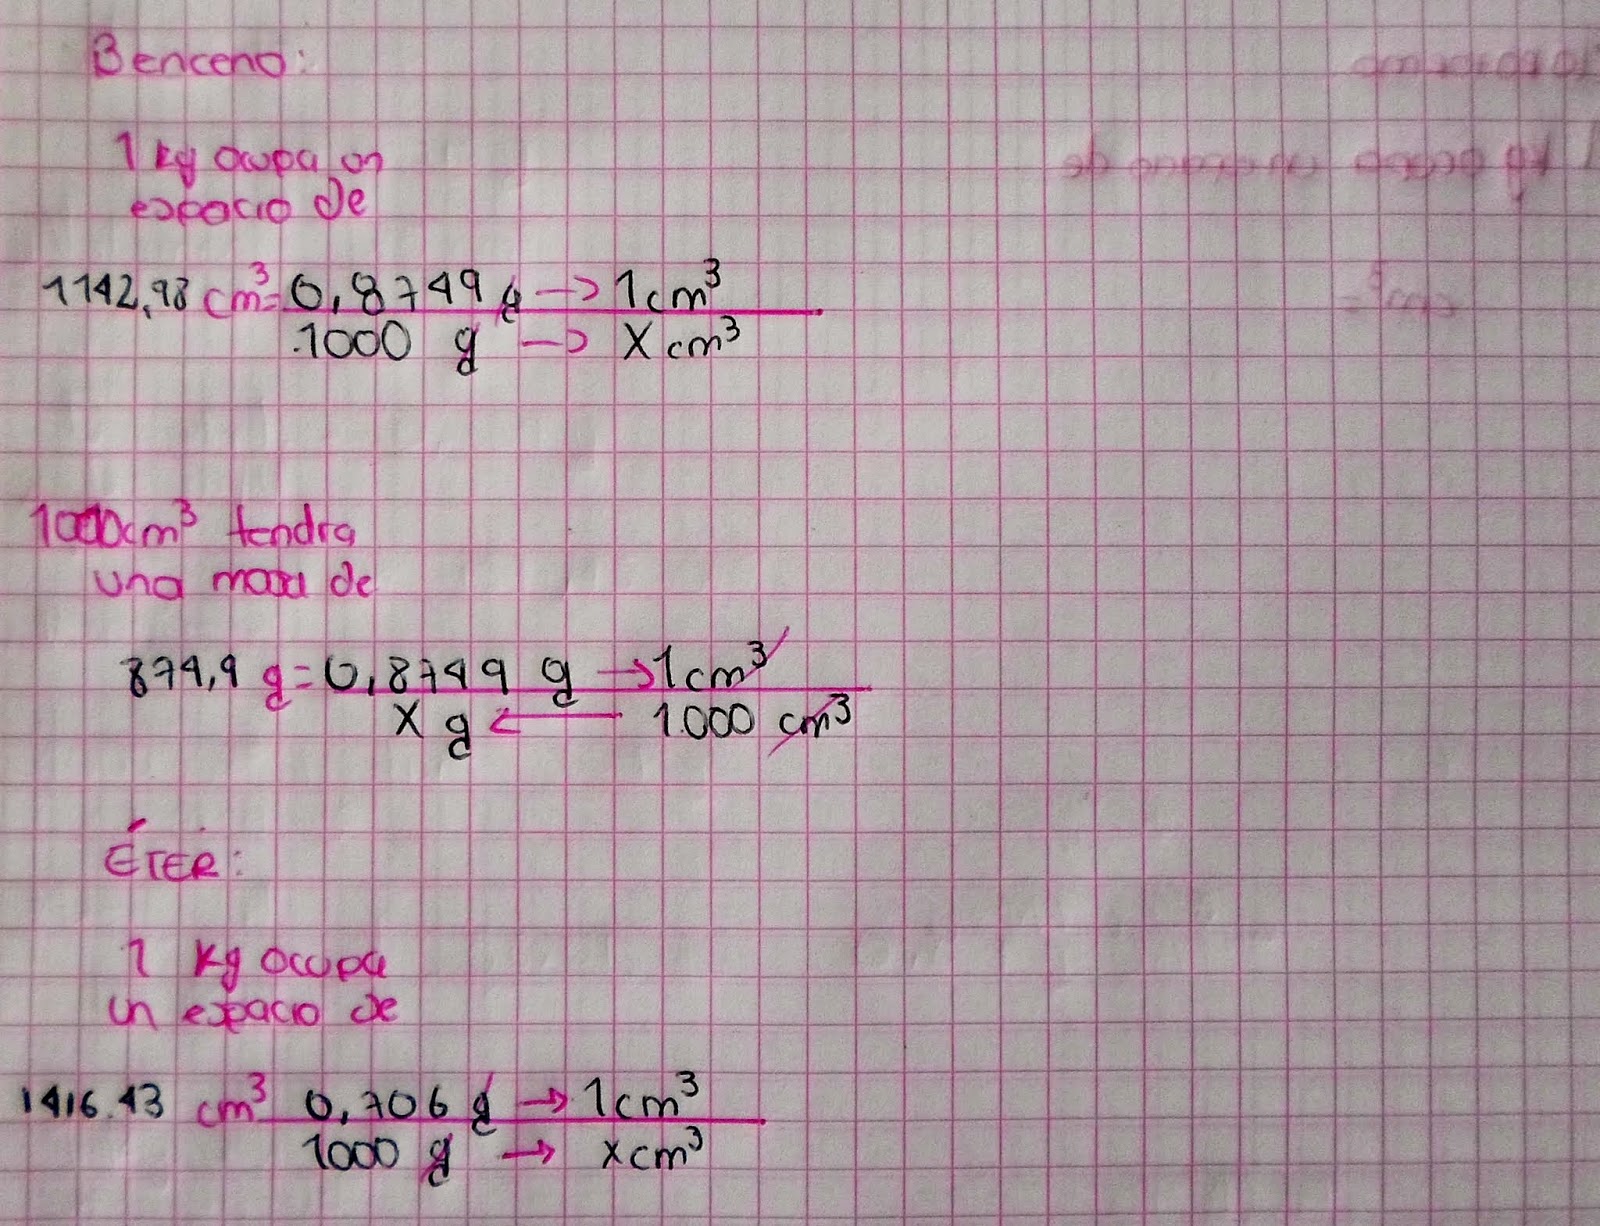 Benceno:
1 kg ocupa un
espacio de
1142,98 cm³= 0,8749 g → 1cm³
1000 g → X cm³
1000cm³ tendra
una masa de
874,9 g = 0,8749 g → 1cm³
X g ← 1000 cm³
ÉTER:
1 Kg ocupa
un espacio de
1416.43 cm³ 0,706 g → 1cm³
1000 g → xcm³